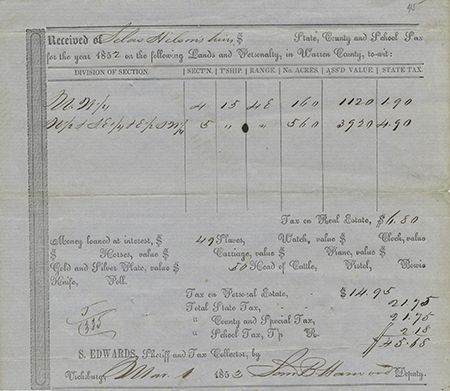 95
Received of heirs, $ State, County and School Tax
for the year 1852 on the following Lands and Personalty, in Warren County, to-wit:
DIVISION OF SECTION. SECT'N. T'SHIP. RANGE. No. ACRES. ASS'D VALUE. STATE TAX.
4 15 4E 160 1120 1.90
5 " " 560 3920 4.90
Tax on Real Estate, $6.80
Money loaned at interest, $ 49 Slaves, Watch, value $ Clock, value
$ Horses, value $ Carriage, value $ Piano, value $
Gold and Silver Plate, value $ 50 Head of Cattle, Pistol, Bowie
Knife, Poll.
Tax on Personal Estate, $14.95
Total State Tax, 21.75
" County and Special Tax, 21.75
" School Tax, T'p R. 2.18
$45.68
S. EDWARDS, Sheriff and Tax Collector, by
Vicksburg, Mar 1 1852 Deputy.